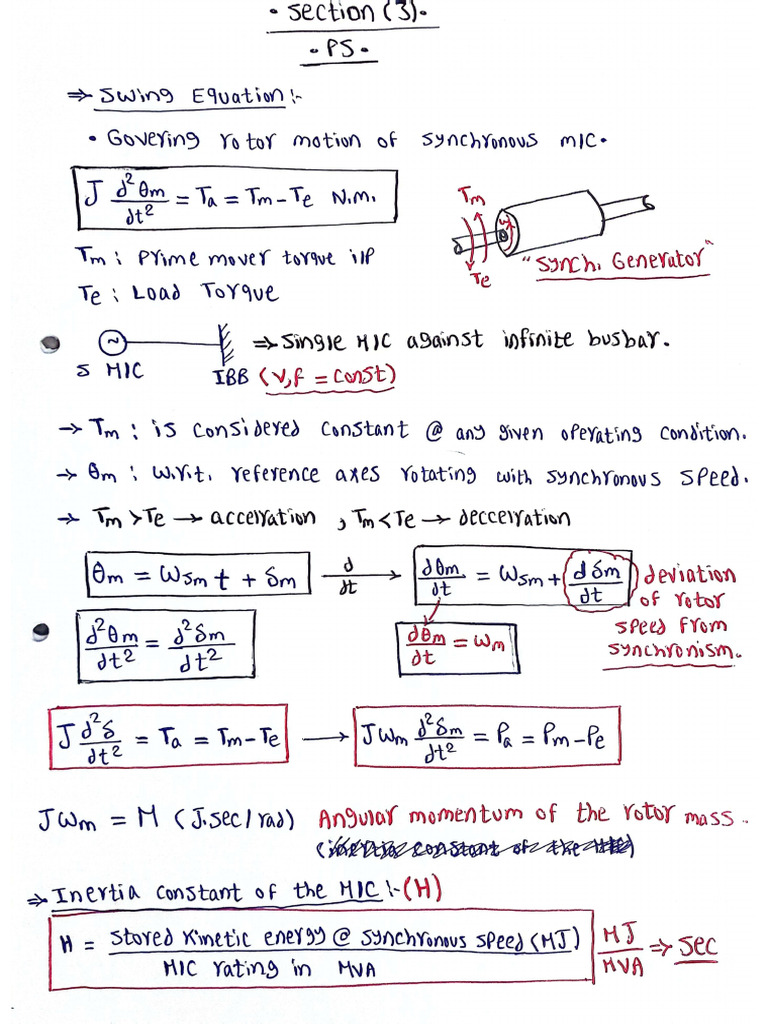 • Section (3).
• PS •
⇒ Swing Equation :-
• Govering rotor motion of synchronous M/C.
J d²θm/dt² = Ta = Tm - Te N.m.
Tm
Te
"Synch. Generator"
Tm : Prime mover torque i/P
Te : Load Torque
~
⇒ Single M/C against infinite busbar.
S M/C
IBB (V,f = const)
→ Tm : is considered constant @ any given operating condition.
→ θm : w.r.t. reference axes rotating with synchronous speed.
→ Tm > Te → accelration , Tm < Te → deccelration
θm = ωsm t + δm d/dt → dθm/dt = ωsm + dδm/dt deviation
of rotor
speed from
synchronism.
d²θm/dt² = d²δm/dt²
dθm/dt = ωm
J d²δ/dt² = Ta = Tm - Te → Jωm d²δm/dt² = Pa = Pm - Pe
Jωm = M (J.sec/rad) Angular momentum of the rotor mass.
⇒ Inertia constant of the M/C :- (H)
H = Stored Kinetic energy @ synchronous speed (MJ) / M/C rating in MVA
MJ/MVA ⇒ sec